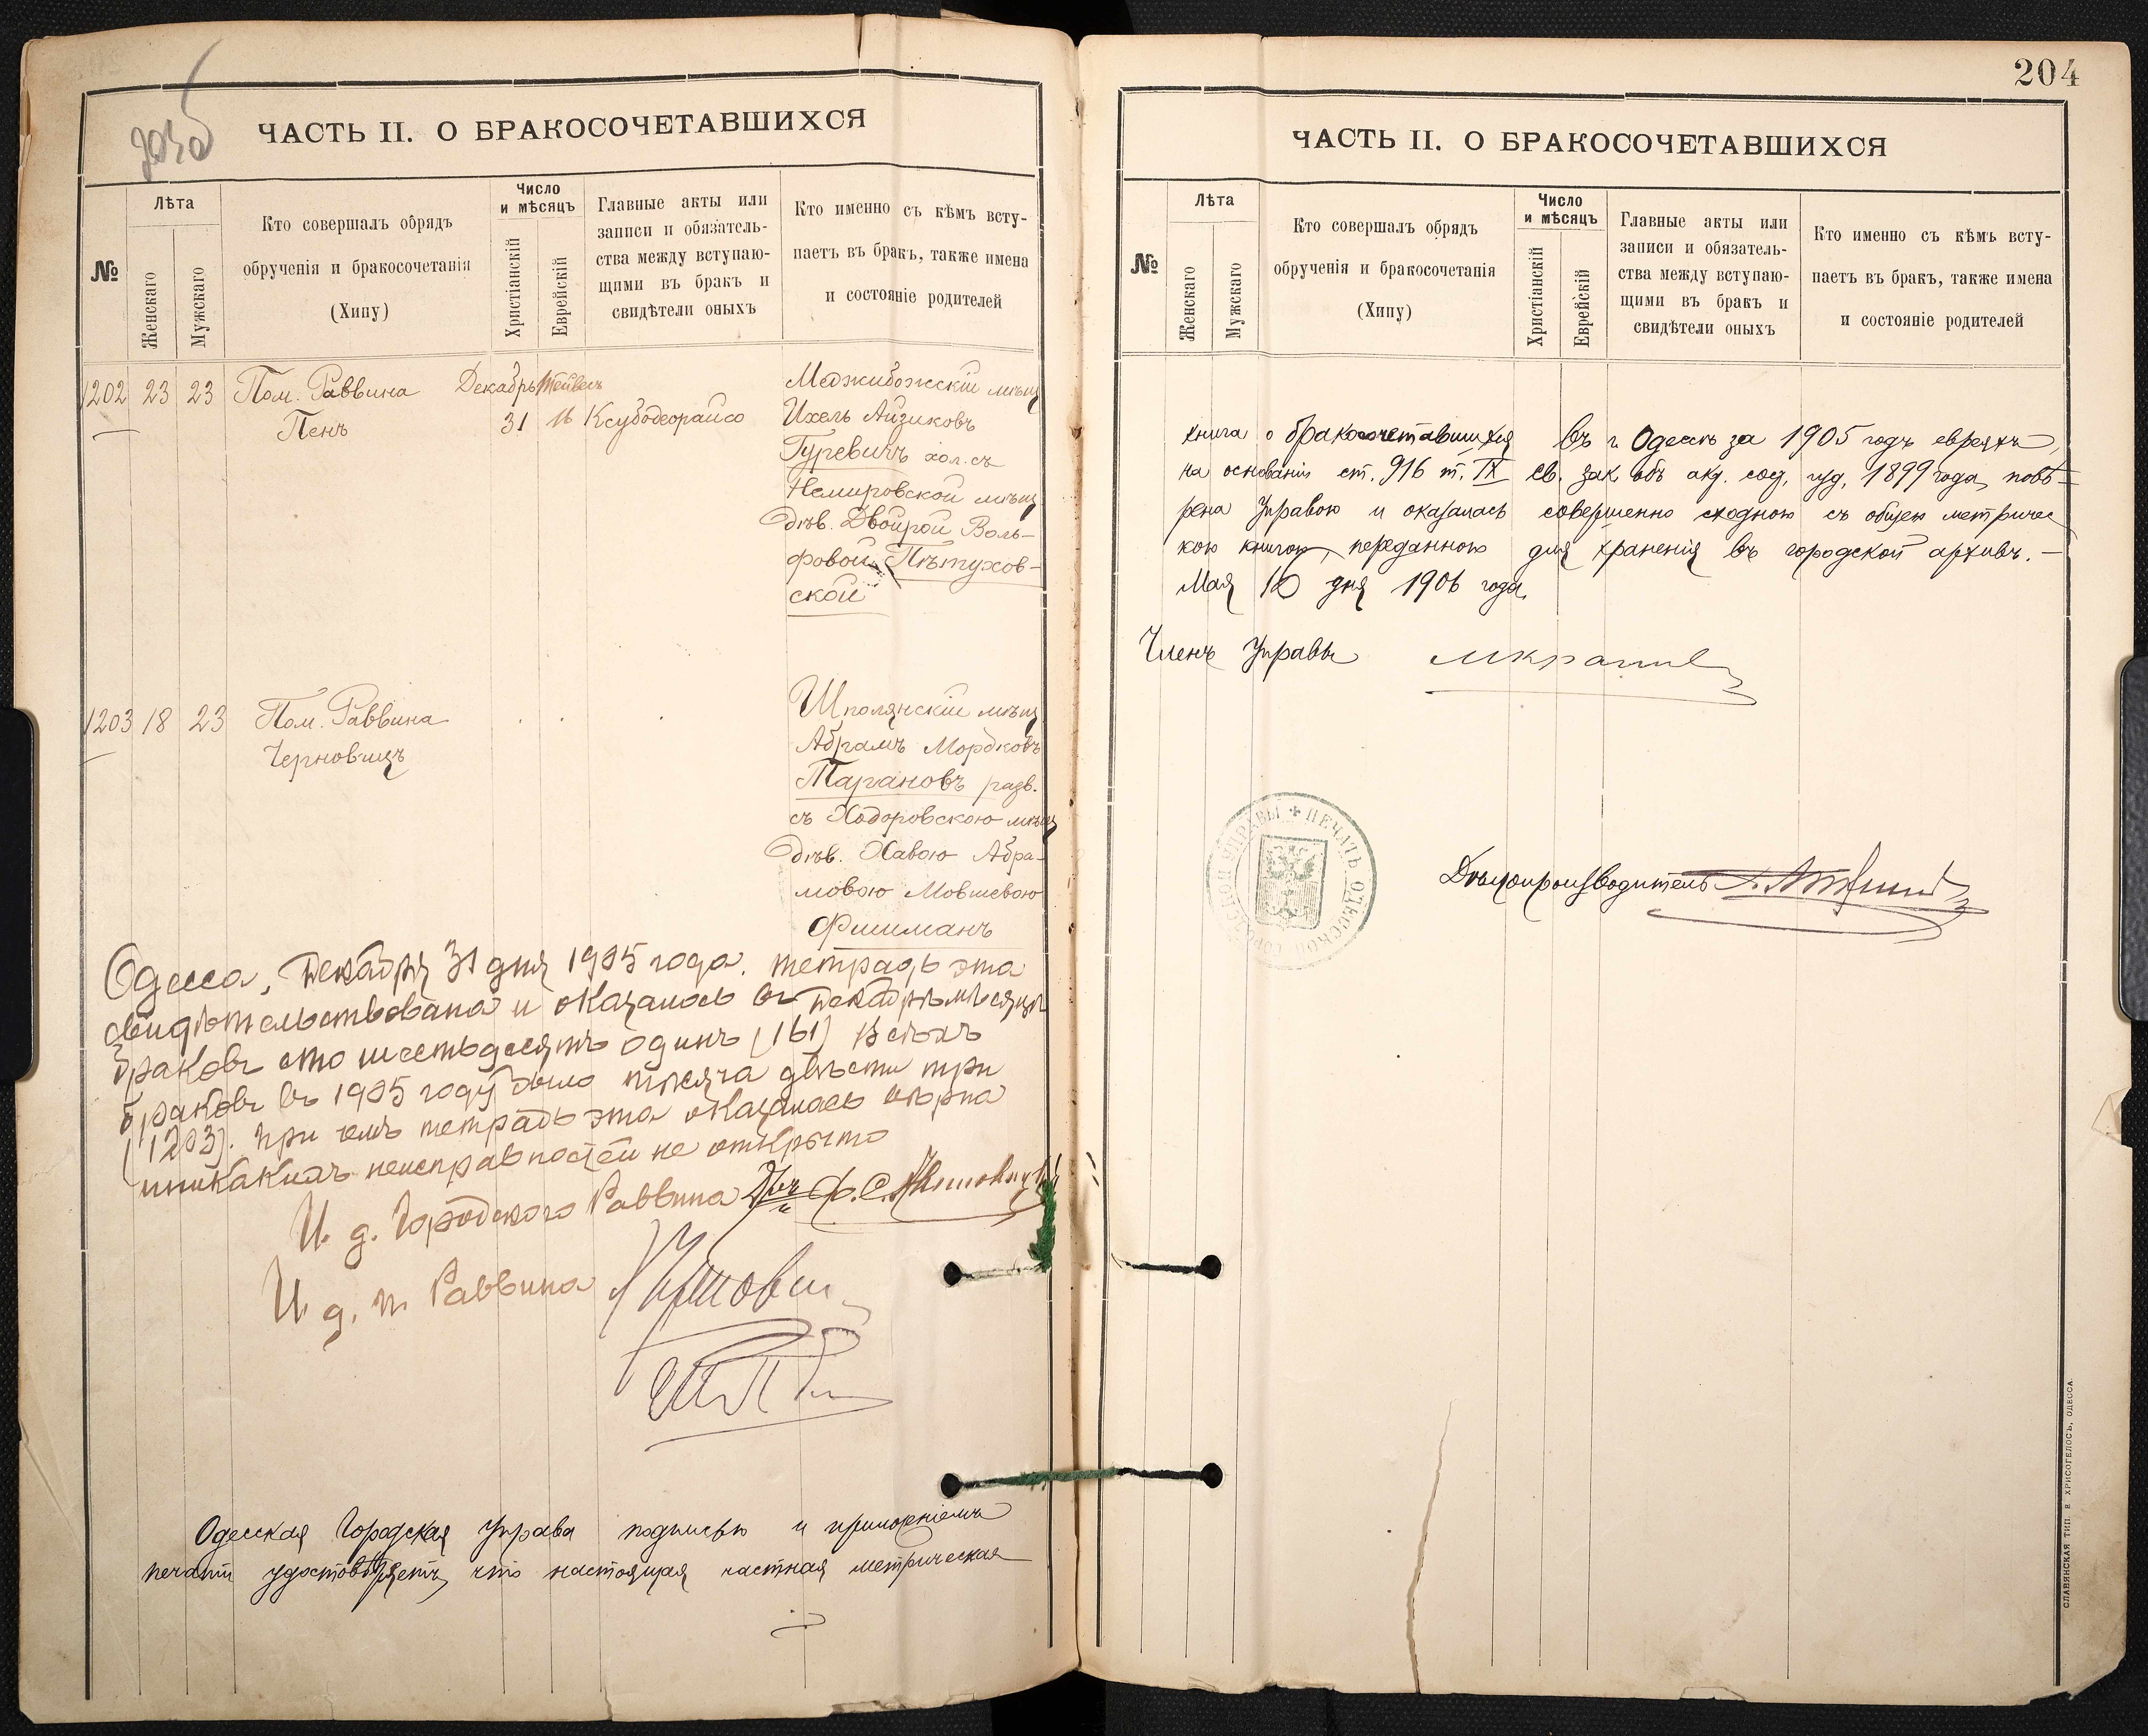 204
203 б
ЧАСТЬ II. О БРАКОСОЧЕТАВШИХСЯ
№
Лѣта
Женскаго
Мужскаго
Кто совершалъ обрядъ
обрученія и бракосочетанія
(Хипу)
Число
и мѣсяцъ
Христіанскій
Еврейскій
Главные акты или
записи и обязатель-
ства между вступаю-
щими въ бракъ и
свидѣтели оныхъ
Кто именно съ кѣмъ всту-
паетъ въ бракъ, также имена
и состояніе родителей
1202 23 23 Пом. Раввина Декабрь Тейвесъ Меджибожскій мѣщ
Пенъ 31 16 Ксубодеорайсо Ихель Айзиковъ
Гуревичъ хол. съ
Немировской мѣщ
дѣв. Двойрой Воль-
фовой Пѣтухов-
ской
1203 18 23 Пом. Раввина Шполянскій мѣщ
Черновицъ Абрамъ Мордковъ
Тарановъ разв.
съ Ходоровскою мѣщ
дѣв. Хавою Абра-
мовою Мовшевою
Фишманъ
Одесса, Декабря 31 дня 1905 года. Тетрадь эта
свидѣтельствована и оказалось въ Декабрѣ мѣсяцѣ
браковъ сто шестьдесятъ одинъ (161) Всѣхъ
браковъ въ 1905 году было тысяча двѣсти три
(1203). При чемъ тетрадь эта оказалась вѣрна
никакихъ неисправностей не открыто
И. д. Городского Раввина
И. д. п. Раввина
Одесская Городская Управа подписью и приложеніемъ
печати удостовѣряетъ, что настоящая частная метрическая
ЧАСТЬ II. О БРАКОСОЧЕТАВШИХСЯ
№
Лѣта
Женскаго
Мужскаго
Кто совершалъ обрядъ
обрученія и бракосочетанія
(Хипу)
Число
и мѣсяцъ
Христіанскій
Еврейскій
Главные акты или
записи и обязатель-
ства между вступаю-
щими въ бракъ и
свидѣтели оныхъ
Кто именно съ кѣмъ всту-
паетъ въ бракъ, также имена
и состояніе родителей
книга о бракосочетавшихся въ г. Одессѣ за 1905 годъ евреяхъ,
на основаніи ст. 916 т. IX св. зак. объ акт. сост. изд. 1899 года, повѣ-
рена Управою и оказалась совершенно сходною съ общею метричес
кою книгою, переданною для храненія въ городской архивъ. —
Мая 10 дня 1906 года.
Членъ Управы
ПЕЧАТЬ ОДЕССКОЙ ГОРОДСКОЙ УПРАВЫ
Дѣлопроизводитель
СЛАВЯНСКАЯ ТИП. Е. ХРИСОГЕЛОСЪ, ОДЕССА.